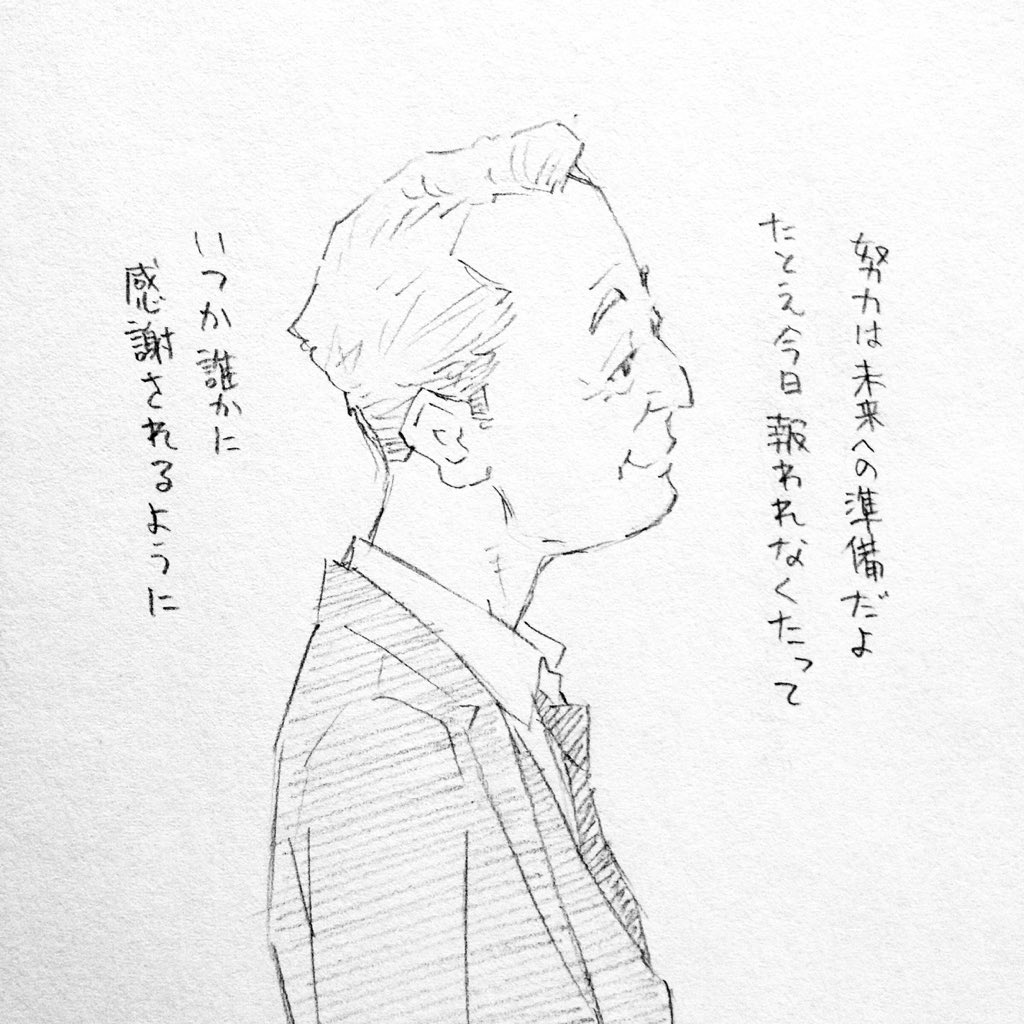 努力は未来への準備だよ
たとえ今日報われなくたって
いつか誰かに
感謝されるように